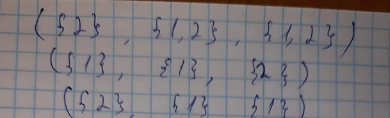 ({2}, {1,2}, {1,2})
({1}, {1}, {2})
({2}, {1} {1})